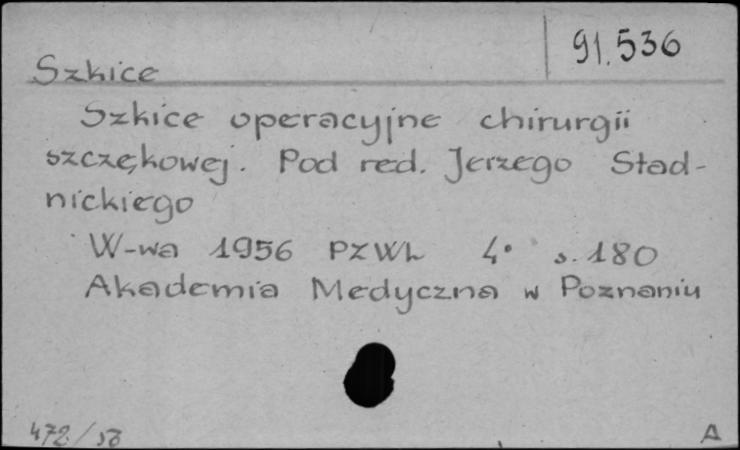 91.536
Szkice
Szkice operacyjne chirurgii
szczękowej. Pod red. Jerzego Stad-
nickiego
W-wa 1956 PZWL 4° s. 180
Akademia Medyczna w Poznaniu
A